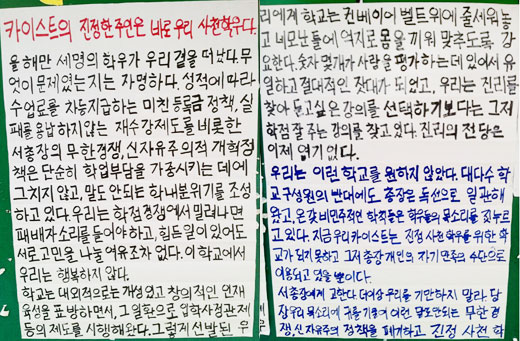 카이스트의 진정한 주인은 바로 우리 사천 학우다.
올해만 세명의 학우가 우리 곁을 떠났다. 무
엇이 문제였는지는 자명하다. 성적에 따라
수업료를 차등지급하는 미친 등록금 정책, 실
패를 용납하지 않는 재수강제도를 비롯한
서총장의 무한경쟁, 신자유주의적 개혁정
책은 단순히 학업부담을 가중시키는 데에
그치지 않고, 말도 안되는 학내분위기를 조성
하고 있다. 우리는 학점경쟁에서 밀려나면
패배자 소리를 들어야 하고, 힘든 일이 있어도
서로 고민을 나눌 여유조차 없다. 이 학교에서
우리는 행복하지 않다.
학교는 대외적으로는 개성있고 창의적인 인재
육성을 표방하면서, 그 일환으로 입학사정관제
등의 제도를 시행해왔다. 그렇게 선발된 우
리에게 학교는 컨베이어 벨트 위에 줄세워놓
고 네모난 틀에 억지로 몸을 끼워 맞추도록 강
요한다. 숫자 몇개가 사람을 평가하는 데 있어서 유
일하고 절대적인 잣대가 되었고, 우리는 진리를
찾아 듣고 싶은 강의를 선택하기보다는 그저
학점 잘 주는 강의를 찾고 있다. 진리의 전당은
이제 여기 없다.
우리는 이런 학교를 원하지 않았다. 대다수 학
교구성원의 반대에도 총장은 독선으로 일관해
왔고, 온갖 비민주적인 학칙들은 학우들의 목소리를 짓누르
고 있다. 지금 우리 카이스트는 진정 사천 학우를 위한 학
교가 되지 못하고 그저 총장 개인의 자기만족의 수단으로
이용되고 있을 뿐이다.
서총장에게 고한다. 더 이상 우리를 기만하지 말라. 당
장 우리 목소리에 귀를 기울여 이런 말도 안되는 무한 경
쟁, 신자유주의적 정책을 폐기하고, 진정 사천 학